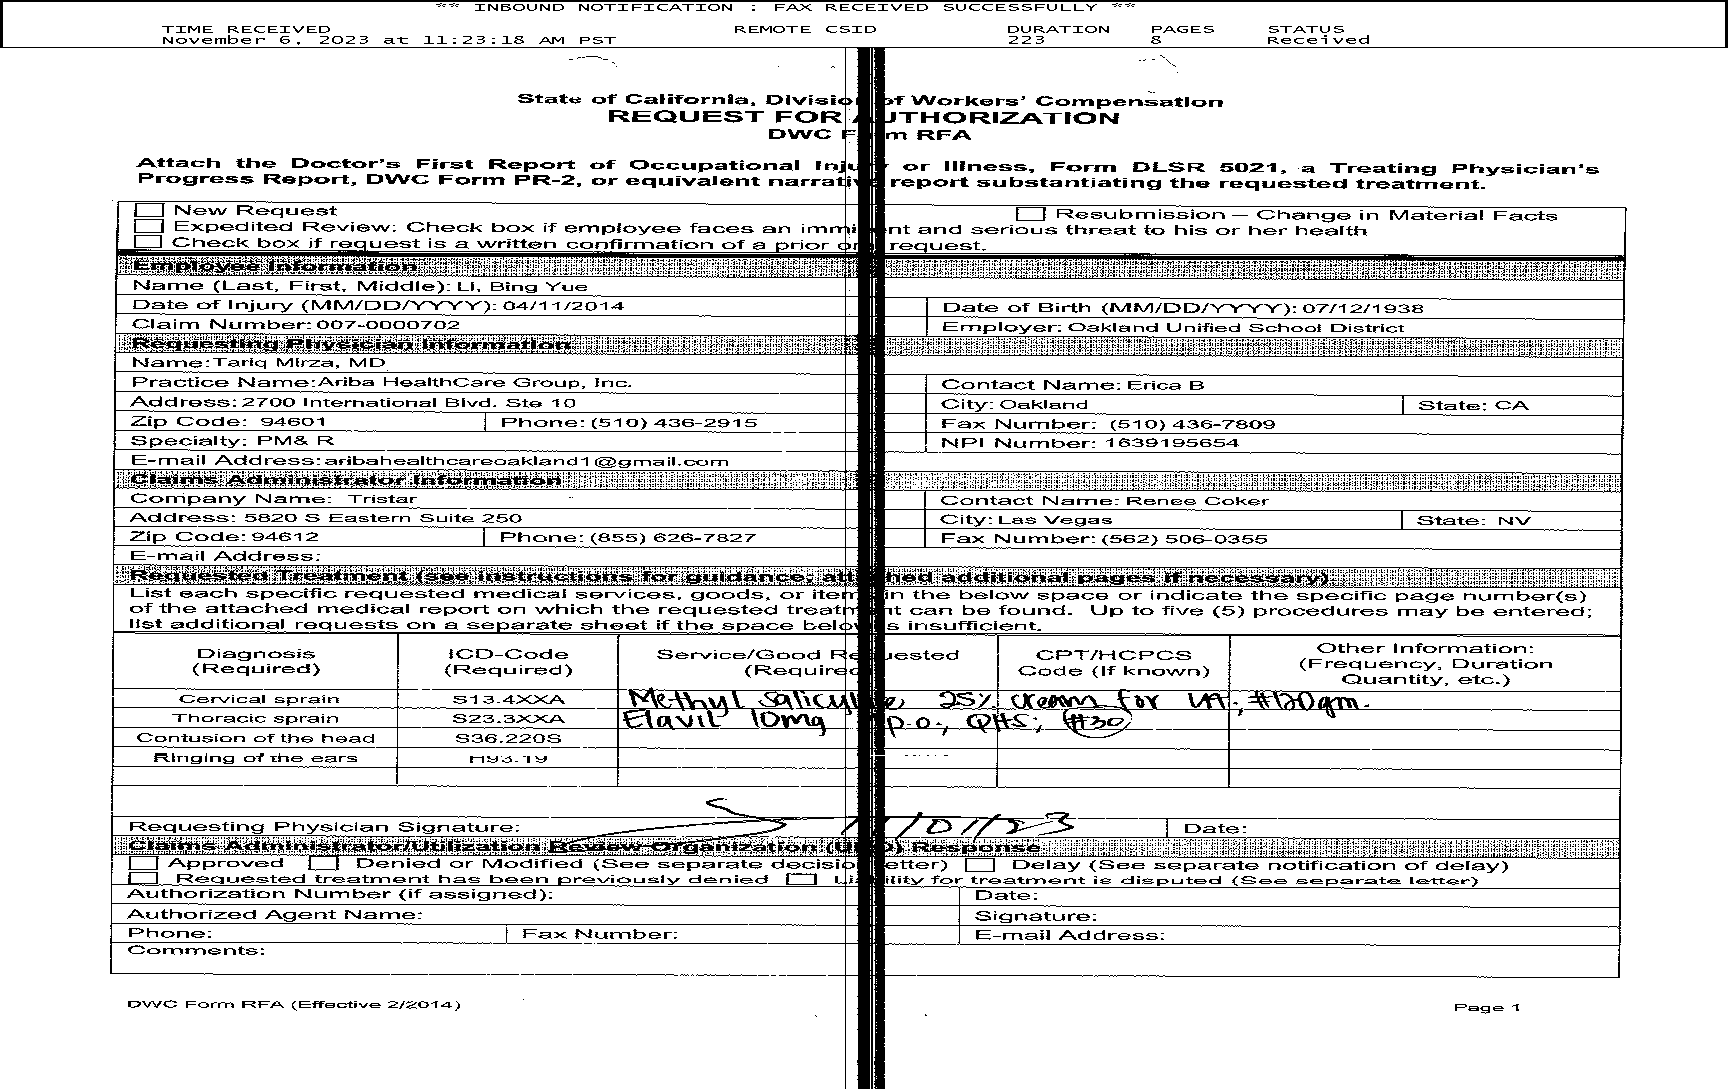 ** INBOUND NOTIFICATION : FAX RECEIVED SUCCESSFULLY **
TIME RECEIVED REMOTE CSID DURATION PAGES STATUS
November 6, 2023 at 11:23:18 AM PST 223 8 Received
State of California, Division of Workers' Compensation
REQUEST FOR AUTHORIZATION
DWC Form RFA
Attach the Doctor's First Report of Occupational Injury or Illness, Form DLSR 5021, a Treating Physician's
Progress Report, DWC Form PR-2, or equivalent narrative report substantiating the requested treatment.
New Request Resubmission – Change in Material Facts
Expedited Review: Check box if employee faces an imminent and serious threat to his or her health
Check box if request is a written confirmation of a prior oral request.
Employee Information
Name (Last, First, Middle): Li, Bing Yue
Date of Injury (MM/DD/YYYY): 04/11/2014 Date of Birth (MM/DD/YYYY): 07/12/1938
Claim Number: 007-0000702 Employer: Oakland Unified School District
Requesting Physician Information
Name: Tariq Mirza, MD
Practice Name: Ariba HealthCare Group, Inc. Contact Name: Erica B
Address: 2700 International Blvd. Ste 10 City: Oakland State: CA
Zip Code: 94601 Phone: (510) 436-2915 Fax Number: (510) 436-7809
Specialty: PM& R NPI Number: 1639195654
E-mail Address: aribahealthcareoakland1@gmail.com
Claims Administrator Information
Company Name: Tristar Contact Name: Renee Coker
Address: 5820 S Eastern Suite 250 City: Las Vegas State: NV
Zip Code: 94612 Phone: (855) 626-7827 Fax Number: (562) 506-0355
E-mail Address:
Requested Treatment (see instructions for guidance; attached additional pages if necessary)
List each specific requested medical services, goods, or items in the below space or indicate the specific page number(s)
of the attached medical report on which the requested treatment can be found. Up to five (5) procedures may be entered;
list additional requests on a separate sheet if the space below is insufficient.
Diagnosis (Required) ICD-Code (Required) Service/Good Requested (Required) CPT/HCPCS Code (If known) Other Information: (Frequency, Duration Quantity, etc.)
Cervical sprain S13.4XXA Methyl Salicylate 25% cream for LA; #120gm.
Thoracic sprain S23.3XXA Elavil 10mg p.o., QHS; #30
Contusion of the head S36.220S
Ringing of the ears H93.19
Requesting Physician Signature: 11/01/23 Date:
Claims Administrator/Utilization Review Organization (URO) Response
Approved Denied or Modified (See separate decision letter) Delay (See separate notification of delay)
Requested treatment has been previously denied Liability for treatment is disputed (See separate letter)
Authorization Number (if assigned): Date:
Authorized Agent Name: Signature:
Phone: Fax Number: E-mail Address:
Comments:
DWC Form RFA (Effective 2/2014) Page 1